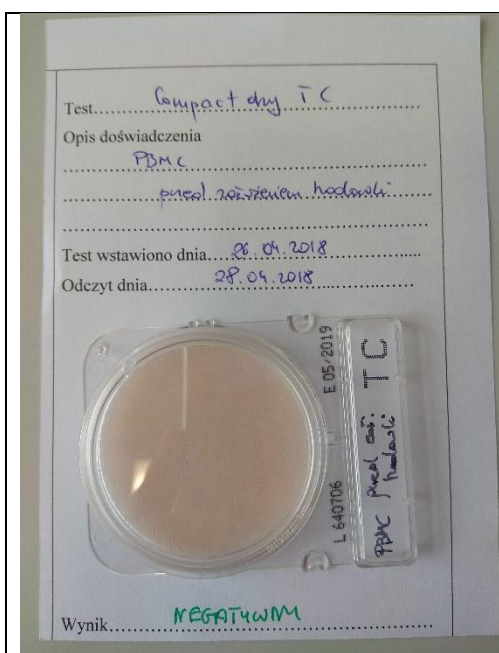 Test.......Compact dry TC
Opis doświadczenia
PBMC
przed założeniem hodowli
Test wstawiono dnia....26.04.2018
Odczyt dnia.............28.04.2018
E 05/2019
L 640706
TC
PBMC przed zał. hodowli
Wynik.........NEGATYWNY